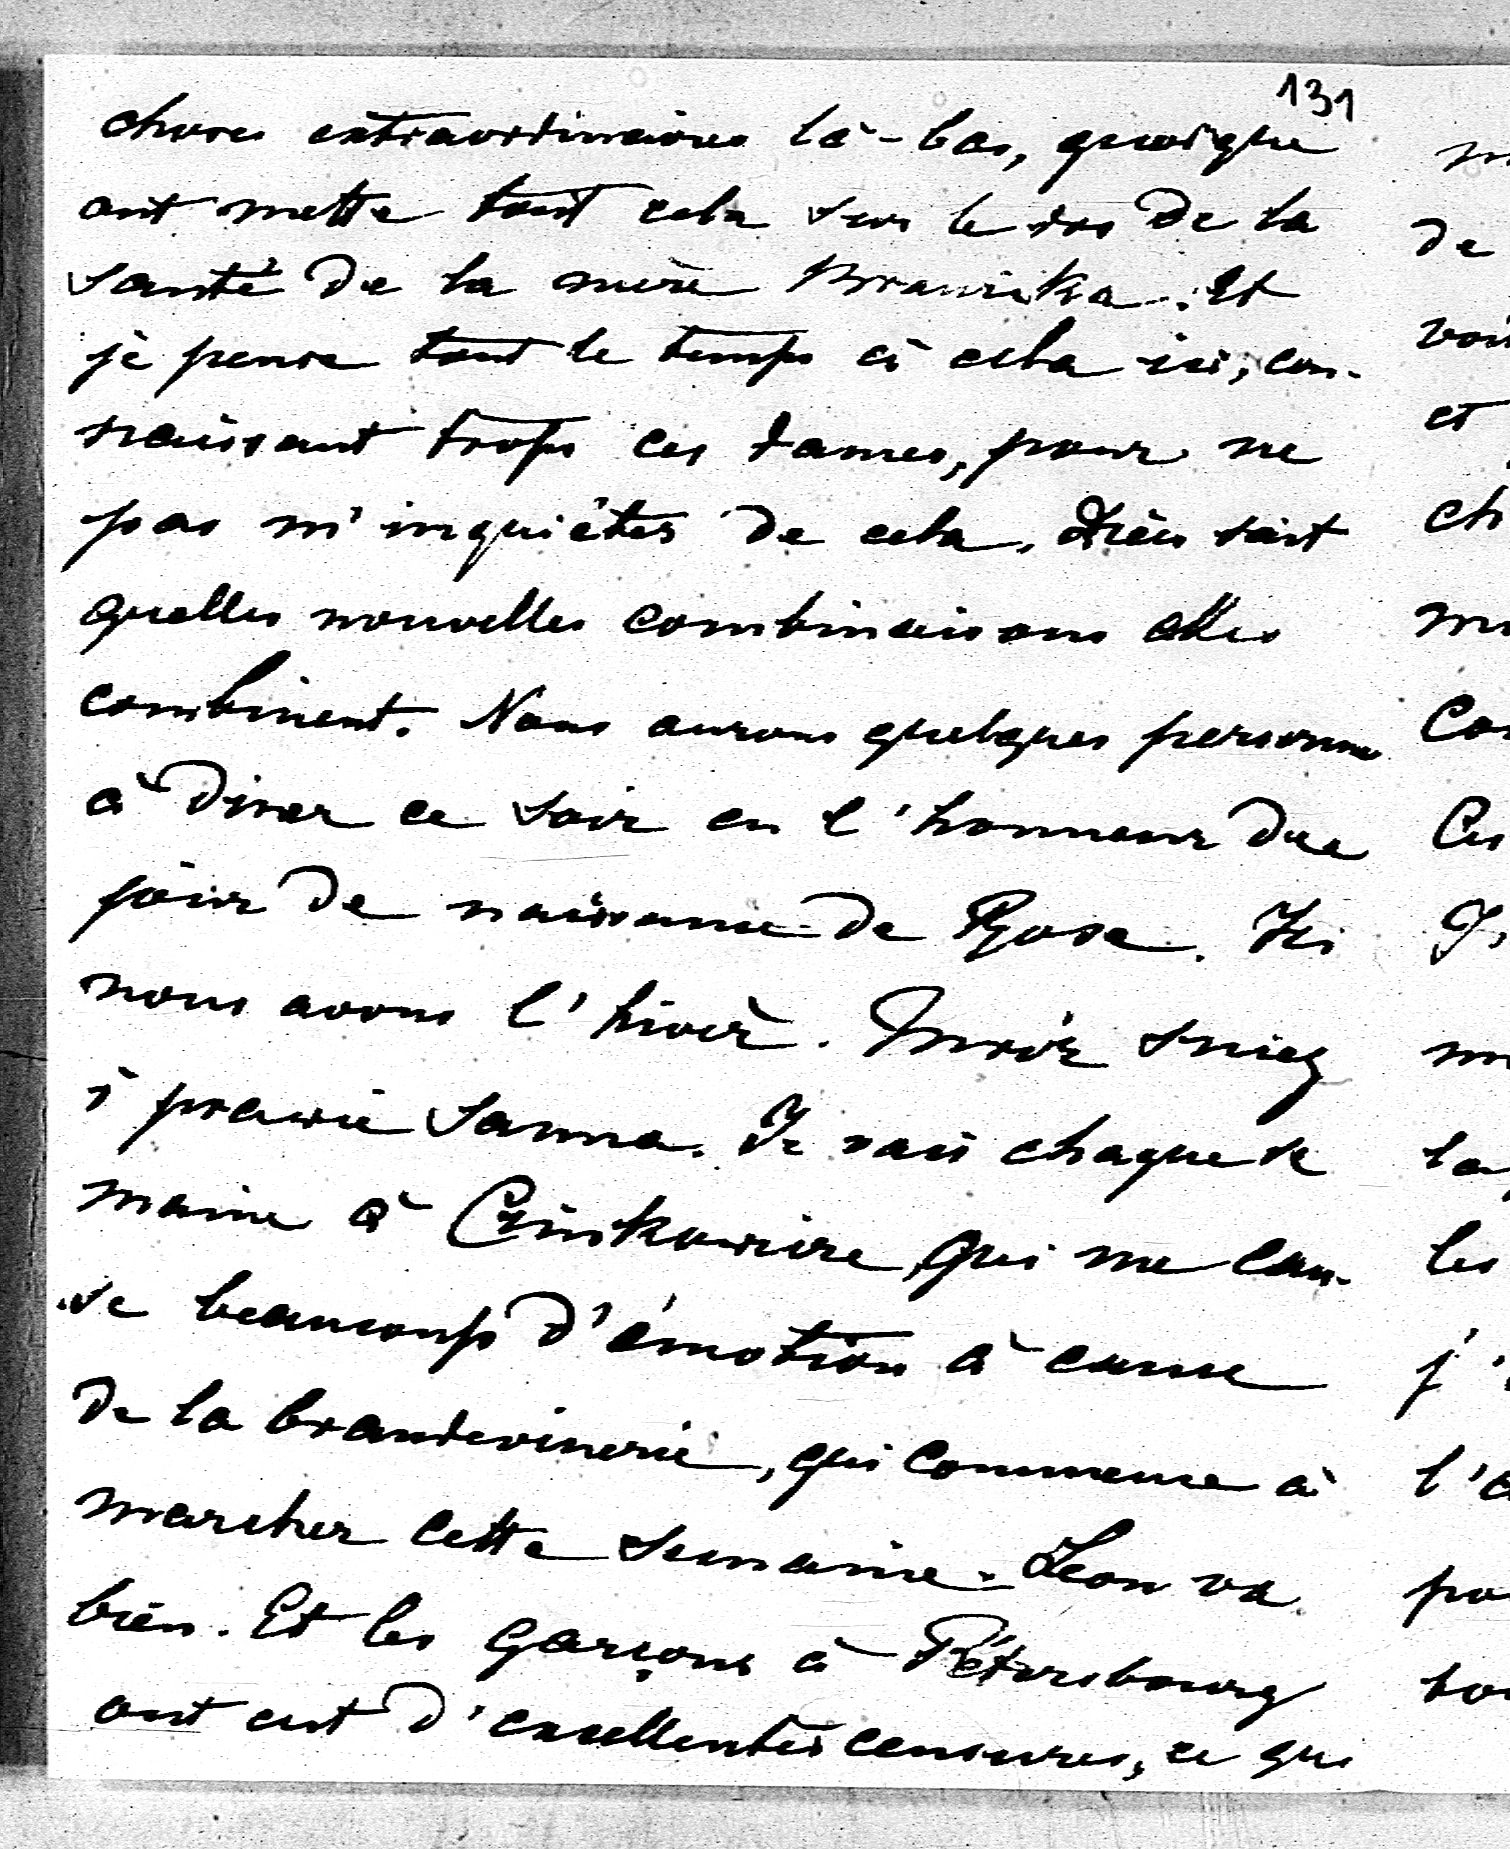 131
choses extraordinaires là-bas, quoique
ont mette tout cela sur le dos de la
santé de la mère Branicka. Et
je pense tout le temps à cela ici, con-
naissant trops ces dames, pour ne
pas m'inquiéter de cela. Dieu sait
quelles nouvelles combinaisons elles
combinent. Nous aurons quelques personnes
à diner ce soir en l'honneur du
jour de naissance de Rose. Ici
nous avons l'hiver. Mróz śnieg
i prawie sanna. Je vais chaque se
maine à
qui me cau-
se beaucoup d'émotion à cause
de la brandevinerie, qui commence à
marcher cette semaine. Léon va
bien. Et les garçons à Pétersbourg
ont eut d'excellentes censures, ce qui